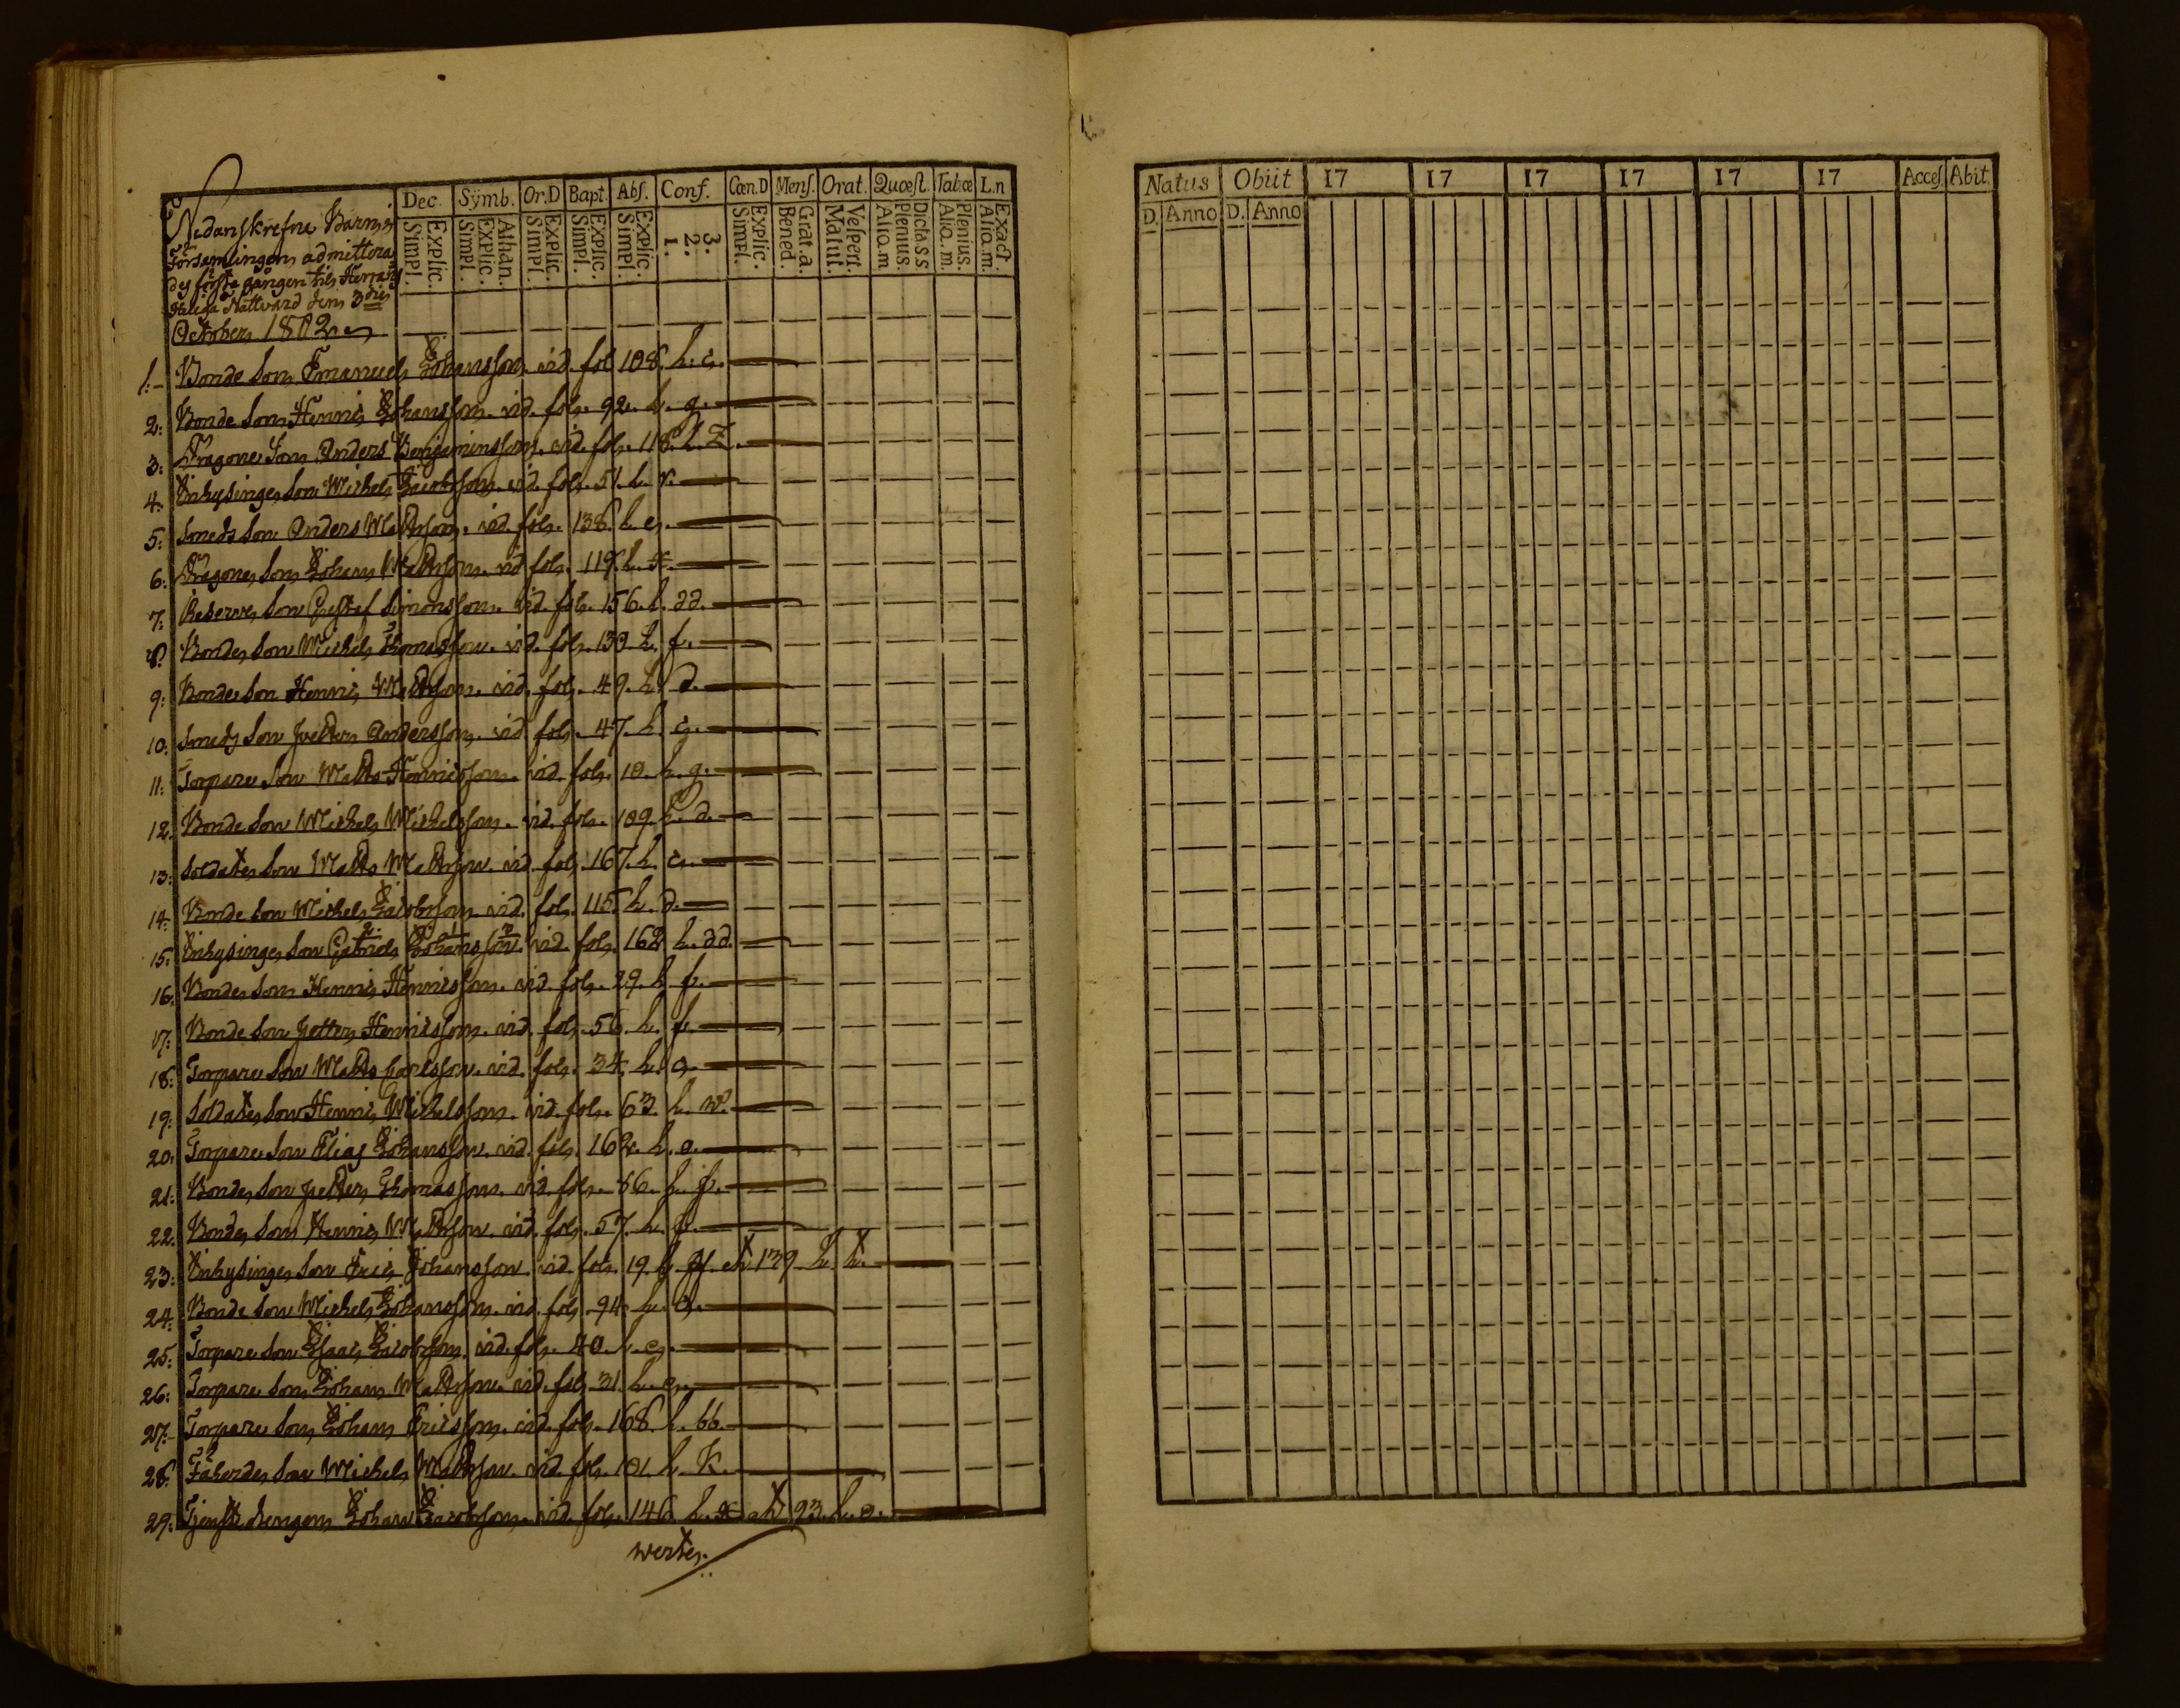 Dec. Symb. Or.D Bapt. Abs. Conf. Cœn.D Mens. Orat. Quæst. Tabæ L.n
Simpl. Explic. Simpl. Explic. Athan. Simpl. Explic. Simpl. Explic. Simpl. Explic. 1. 2. 3. Simpl. Explic. Bened. Grat. a. Matut. Vespert. Aliq. m Plenius. Dicta S S Aliq. m. Plenius. Aliq. m. Exact.
Nedanskrefne Barn i
Församlingen admittera
des första gången til Herrans
Heliga Nattvard den 3die
October 1802.
1. Bonde Son Emanuel Johansson. vid. fol. 108. h. c.
2: Bonde Son Henric Johansson. vid. fol. 92. h. g.
3: Dragone Son Anders Benjaminsson. vid. fol. 118. h. Z.
4. Inhysinges Son Michel Jacobsson. vid. fol. 51. h. r.
5: Smeds Son Anders Mattsson. vid. fol. 138. h. e.
6: Dragones Son Johan Mattsson. vid. fol. 119. h. x.
7: Reserves Son Gustaf Simonsson. vid. fol. 156. h. dd.
8: Bondes Son Michel Thomasson. vid. fol. 130. h. f.
9: Bondes Son Henric Mattsson. vid. fol. 49. h. d.
10. Smeds Son Petter Andersson. vid. fol. 47. h. c.
11: Torpare Son Matts Henricsson. vid. fol. 10. h. g.
12. Bonde Son Michel Michelsson. vid. fol. 109. h. d.
13: Soldates Son Matts Mattsson. vid. fol. 167. h. c.
14. Bonde Son Michel Jacobsson. vid. fol. 115. h. d.
15: Inhysinges Son Gabriel Johansson. vid. fol. 162 h. dd.
16. Bondes Son Henric Henricsson. vid. fol. 29. h. f.
17: Bonde Son Petter Henricsson. vid. fol. 56. h. f.
18: Torpare Son Matts Carlsson. vid. fol. 34. h. a.
19: Soldates Son Henric Michelsson. vid. fol. 63. h. w.
20: Torpare Son Elias Johansson. vid. fol. 162. h. a.
21: Bondes Son Petter Thomasson. vid. fol. 56. h. f.
22: Bondes Son Henric Mattsson. vid. fol. 57. h. f.
23: Inhysinges Son Eric Johansson vid. fol. 19. h. et 139. h. t.
24: Bonde Son Michel Johansson. vid. fol. 94. h. a.
25: Torpare Son Isaac Jacobsson. vid. fol. 40. h. e.
26: Torpare Son Johan Mattsson. vid. fol. 31. h. e.
27: Torpare Son Johan Ericsson. vid. fol. 168. h. bb.
28: Fäherdes Son Michel Mattsson. vid. fol. 101. h. K.
29: Tjenste drengen Johan Jacobsson. vid. fol. 146. h. x et 93. h. a.
wertes.
Natus Obiit 17 17 17 17 17 17 Acces. Abit.
D. Anno D. Anno